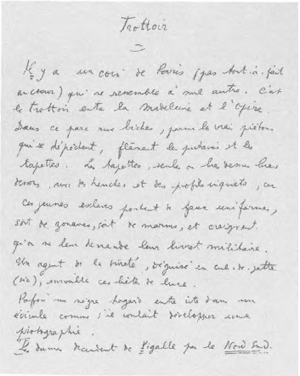 Trottoir
Il y a un coin de Paris (pas tout à fait
au cœur) qui ne ressemble à nul autre. C'est
le trottoir entre la Madeleine et l'Opéra.
Dans ce parc aux biches, parmi les vrais piétons
qui se dépêchent, flânent les putains et les
tapettes. Les tapettes, seules ou bras dessus bras
dessous, avec des hanches et des profils, car
ces jeunes esclaves portent de faux uniformes,
soit de zouaves, soit de marins, et craignent
qu'on ne leur demande leur livret militaire.
Un agent de la sûreté, déguisé en cul-de-jatte
(sic), surveille ces bêtes de luxe.
Parfois un nègre hagard entre dans un
édicule comme s'il voulait développer une
photographie.
Les dames descendent de Pigalle par le Nord-Sud.